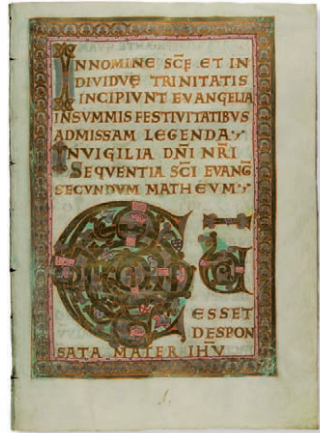 INNOMINE SC̄Ę ET IN
DIVIDVĘ TRINITATIS
INCIPIVNT EVANGELIA
INSVMMIS FESTIVITATIBVS
ADMISSAM LEGENDA
INVIGILIA DN̄I NR̄I
SEQVENTIA SC̄I EVANḠ
SECVNDVM MATHEVM
ESSET
DESPON
SATA MATER IHV̄